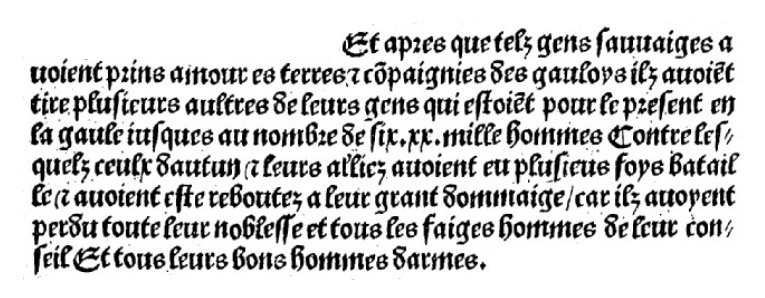 Et apres que telz gens sauuaiges a
uoient prins amour es terres ⁊ cõpaignies des gauloys ilz auoiẽt
tire plusieurs aultres de leurs gens qui estoiẽt pour le present en
la gaule iusques au nombre de six.xx.mille hommes Contre les⸗
quelz ceulx dautun ⁊ leurs alliez auoient eu plusieus foys batail
le/⁊ auoient este reboutez a leur grant dommaige/car ilz auoyent
perdu toute leur noblesse et tous les saiges hommes de leur con⸗
seil Et tous leurs bons hommes darmes.